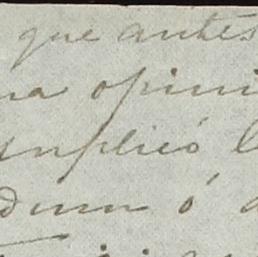 que antes
na opini
umplió l
dum ó a